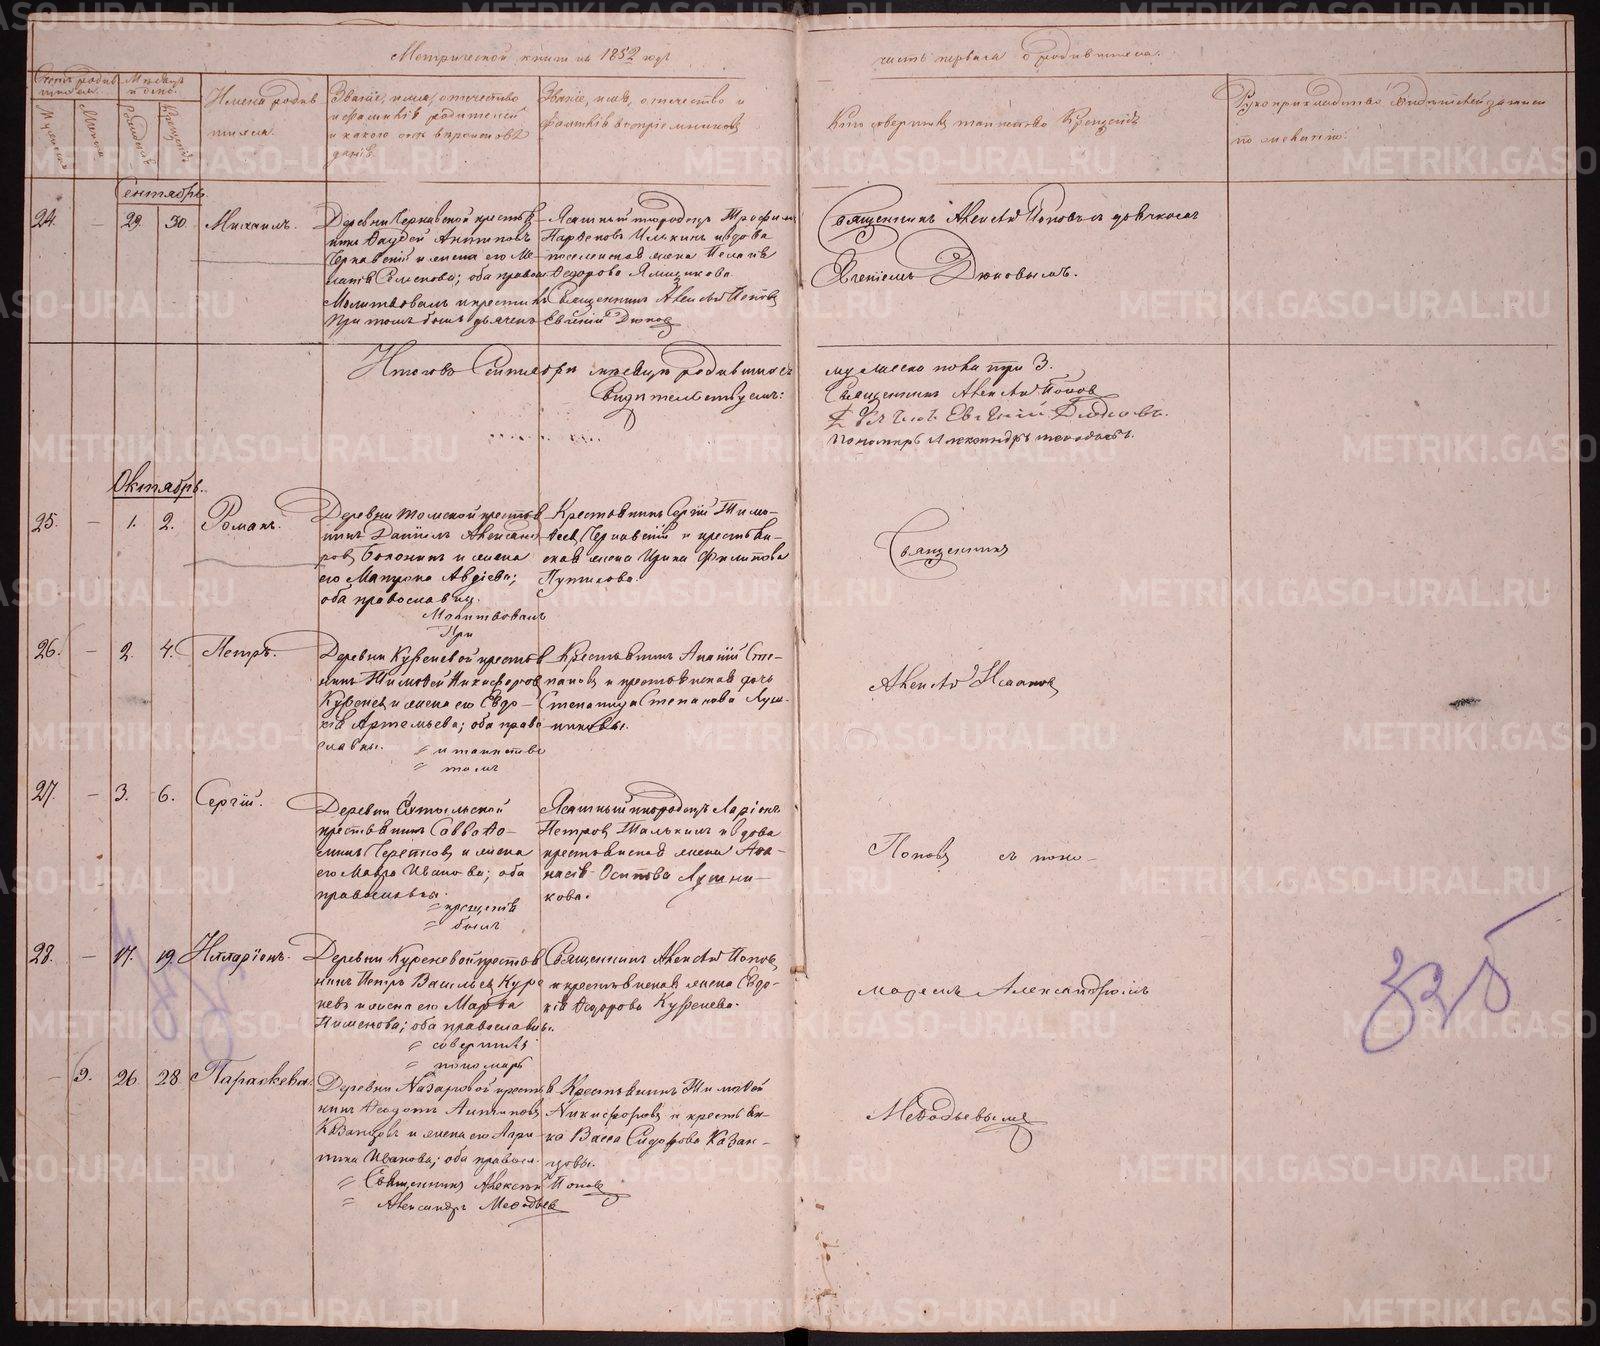 Метрической книги на 1852 годъ
часть первая о родившихся.
Счетъ родив
шихся.
Мѣсяцъ
и день.
Мужеска
Женска
Рожденія
Крещенія
Имена родив
шихся.
Званіе, имя, отчество
и фамилія родителей
и какого они вѣроисповѣ
данія.
Званіе, имя, отчество и
фамилія воспріемниковъ
Кто совершалъ таинство Крещенія
Рукоприкладство свидѣтелей записи
по желанію.
Сентябрь.
24. – 29. 30. Михаилъ.
Деревни крестья
нинъ Фаддей Антиповъ
и жена его Ме
ланія Семенова; оба правосл
Молитвовалъ и крестилъ
При томъ былъ дьячекъ
Ясашный инородецъ Трофимъ
Парфеновъ и вдова
поселенская жена Пелагія
Федорова Ямщикова.
Священникъ Алексѣй Поповъ
Евгеній Дюков
Священникъ Алексѣй Поповъ съ дьячкомъ
Евгеніемъ Дюковымъ.
Итого въ Сентябрѣ мѣсяцѣ родившихся
мужеска пола три 3.
Свидѣтельствуемъ:
Священникъ Алексѣй Поповъ
Дьячекъ Евгеній Дюковъ.
Пономарь Александръ
Октябрь.
25. – 1. 2. Романъ.
Деревни Томской крестья
нинъ Даніилъ Александ
ровъ и жена
его Матрона Авдіева;
оба православны.
Молитвовалъ
При
Крестьянинъ Сергій Тимо-
феевъ и крестьян-
ская жена Ирина Филипова
Путилова.
Священникъ
26. – 2. 4. Петръ.
Деревни Куреневой крестья
нинъ Тимофей Никифоровъ
Куреневъ и жена его Евдо-
кія Артемьева; оба право
славны.
= и таинство
= томъ
Крестьянинъ Ананій Сте-
пановъ и крестьянская дочь
Степанида Степанова Луш-
никовы.
Алексѣй Иванов
27. – 3. 6. Сергій.
Деревни
крестьянинъ Савва Фо-
минъ и жена
его Мавра Иванова; оба
православны.
= крещенія
= былъ
Ясашный инородецъ Ларіонъ
Петровъ и вдова
крестьянская жена Афа-
насія Осипова Лушни-
кова.
Поповъ съ поно-
28. – 17. 19. Илларіонъ.
Деревни Куреневой крестья
нинъ Петръ Васильевъ Куре
невъ и жена его Марфа
Пименова; оба православны.
= совершилъ
= пономарь
Священникъ Алексѣй Поповъ
и крестьянская жена Евдо-
кія Федорова Куренева.
маремъ Александромъ
– 9. 26. 28. Параскева.
Деревни Назаровой крестья
нинъ Федотъ Антиповъ
Казанцевъ и жена его Агри
пина Иванова; оба правосл.
= Священникъ Алексѣй Поповъ
= Александръ Мефодьев
Крестьянинъ Тимофей
Никифоровъ и крестьян-
ка Васса Сидорова Казан-
цовы.
Мефодьевымъ
325
METRIKI.GASO-URAL.RU